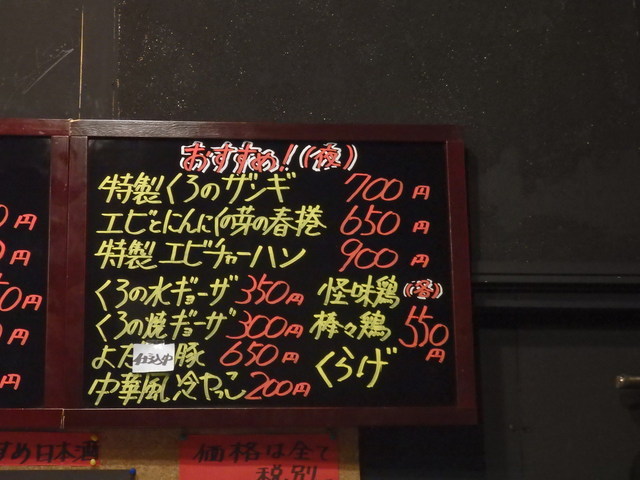 おすすめ!(夜)
特製くろのザンギ 700円
エビとにんにくの芽の春捲 650円
特製エビチャーハン 900円
くろの水ギョーザ 350円
くろの焼ギョーザ 300円
よだ 仕込中 豚 650円
中華風冷やっこ 200円
怪味鶏
棒々鶏 550円
くらげ
0円
0円
0円
0円
円
すめ日本酒
価格は全て
税別